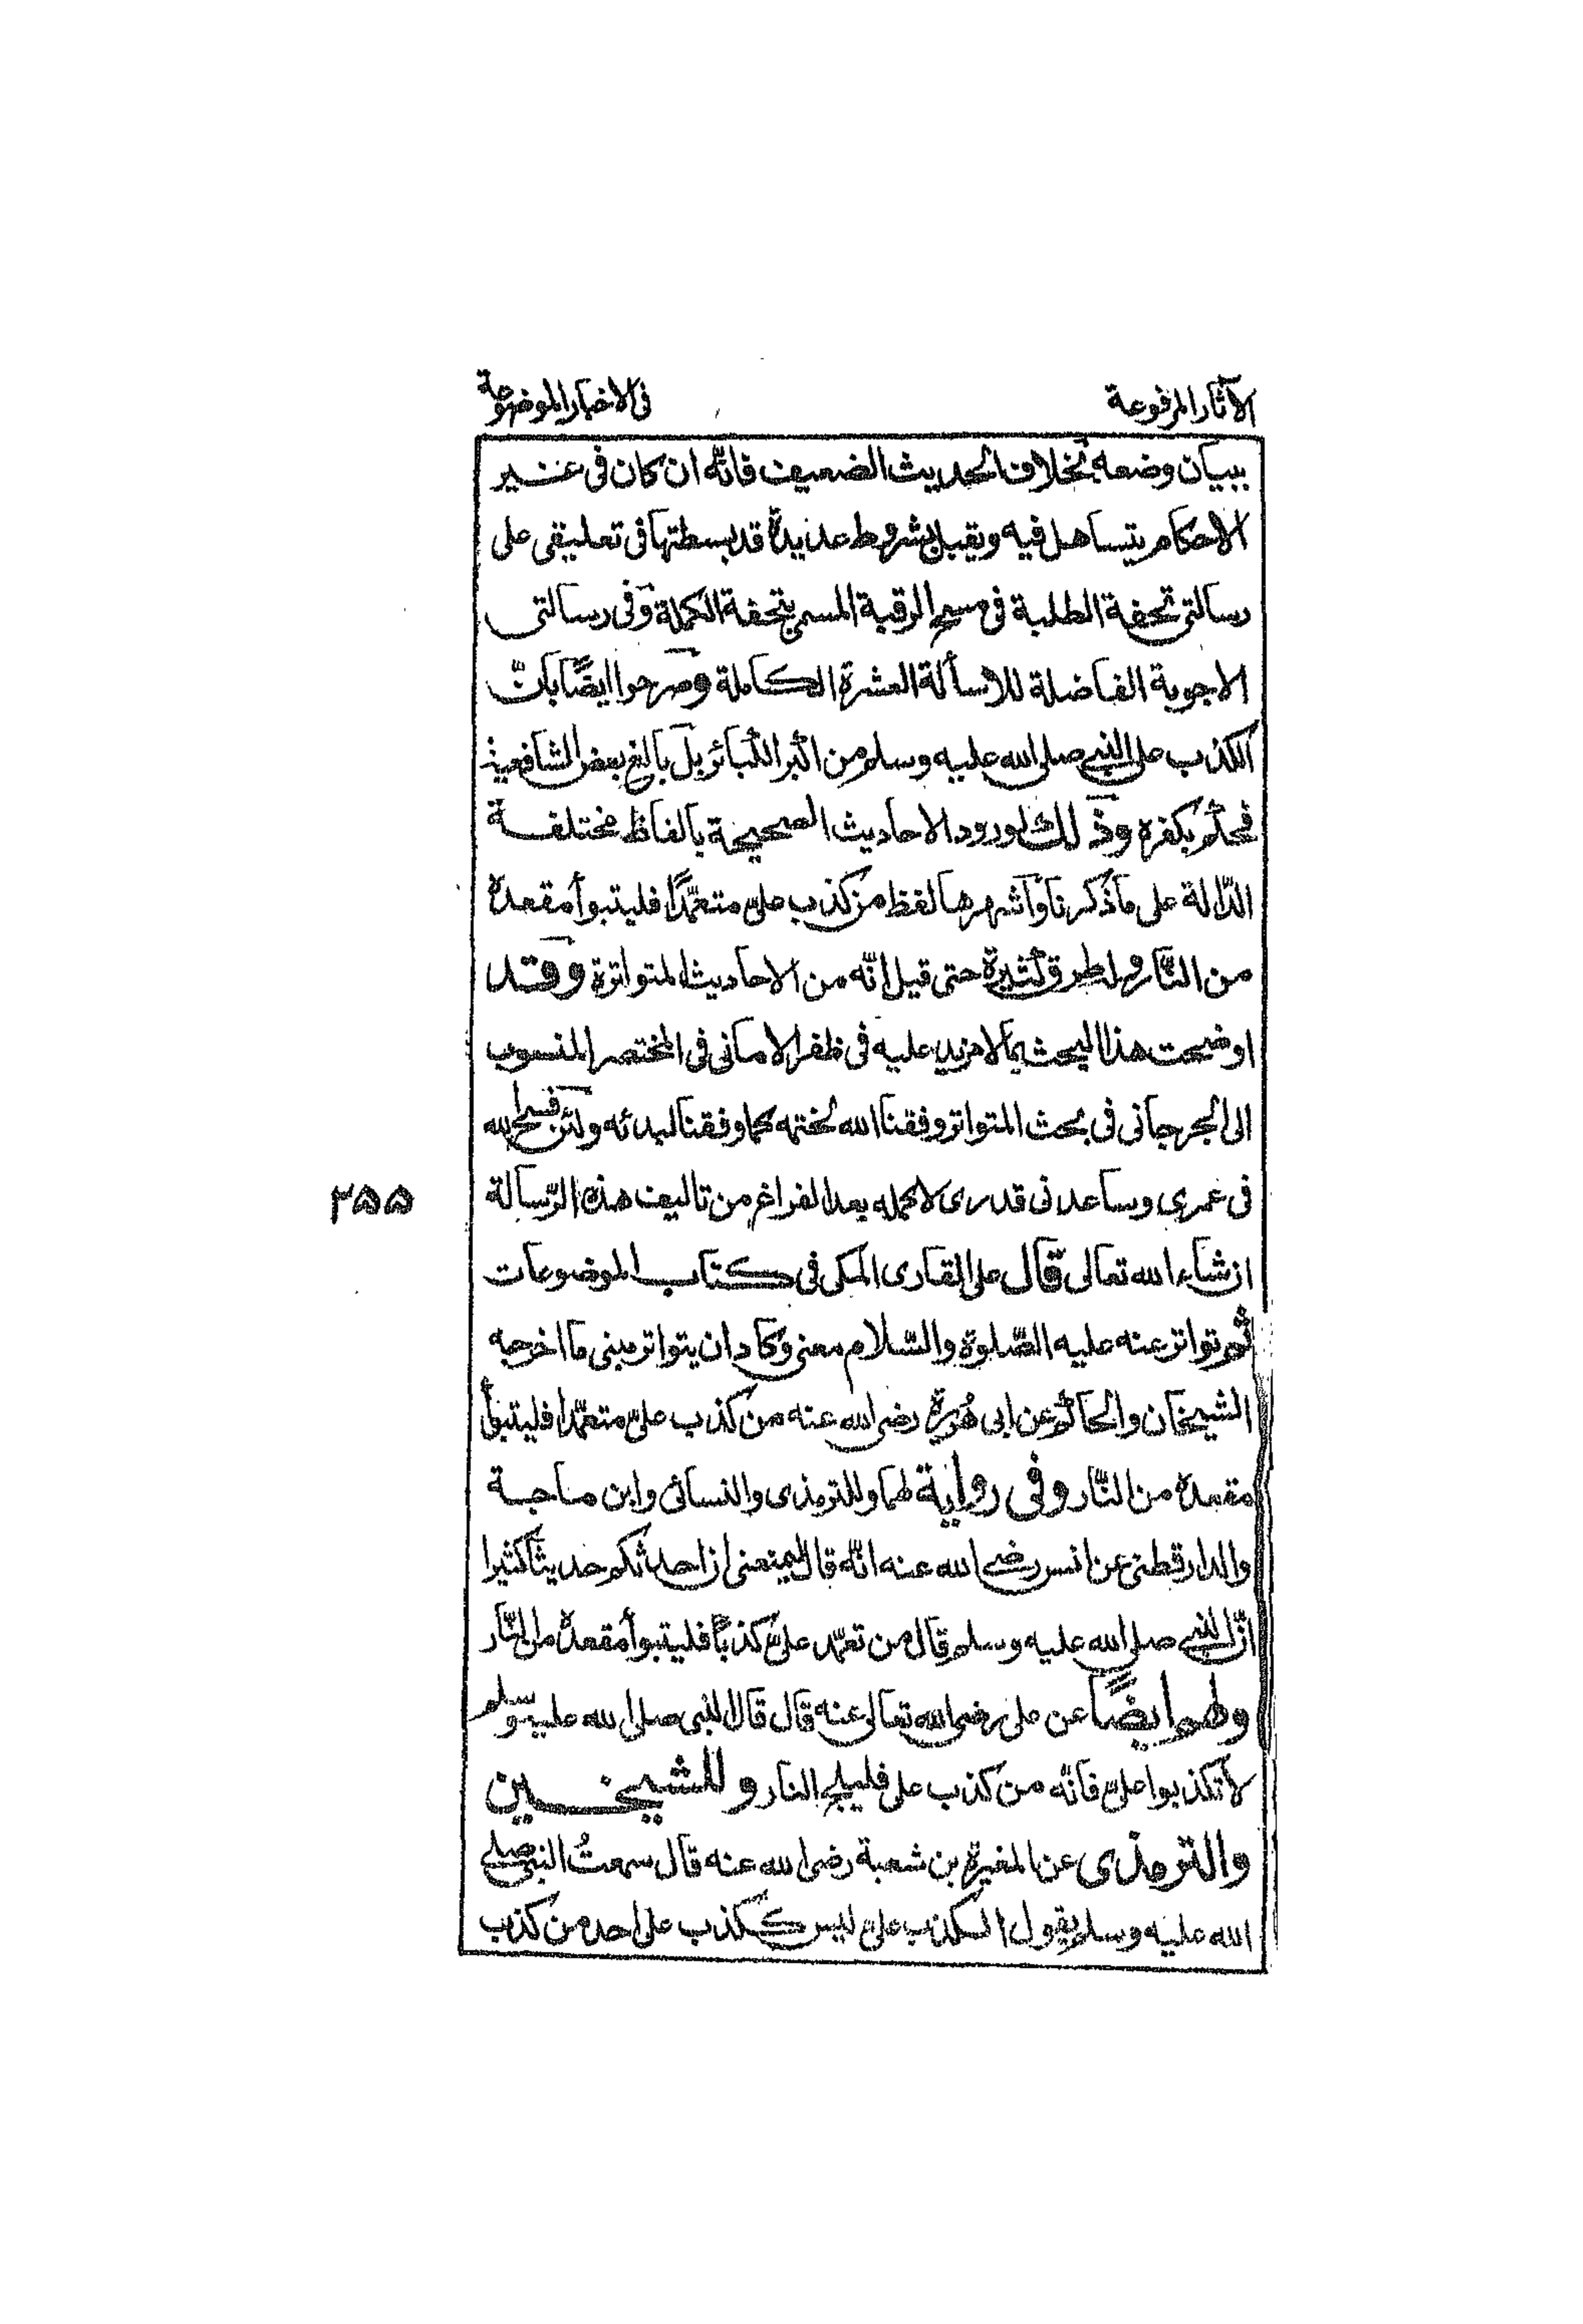 الآثار المرفوعة
فى الاخبار الموضوعة
ببيان وضعه بخلاف الحديث الضعيف فانّه ان كان فى غير
الاحكام يتساهل فيه ويقبل بشروط عديدة قد بسطتها فى تعليقى على
رسالتى تحفة الطلبة فى مسح الرقبة المسمى بتحفة الكملة وفى رسالتى
الاجوبة الفاضلة للاسألة العشرة الكاملة وصرحوا ايضًا بانّ
الكذب على النبى صلى الله عليه وسلم من اكبر الكبائر بل بالغ بعض الشافعية
فحكم بكفره وذلك لورود الاحاديث الصحيحة بالفاظ مختلفة
الدّالة على ما ذكرنا واشهرها لفظ من كذب علىّ متعمّدًا فليتبوأ مقعده
من النّار وله طرق كثيرة حتى قيل انّه من الاحاديث المتواترة وقد
اوضحت هذا البحث بما لا مزيد عليه فى ظفر الامانى فى المختصر المنسوب
الى الجرجانى فى بحث المتواتر وفقنا الله لختمه كما وفقنا لبدئه ولئن فسح الله
فى عمرى وساعدنى قدرى لاكمله بعد الفراغ من تاليف هذه الرّسالة
۲۵۵
ان شاء الله تعالى قال على القارى المكى فى كتاب الموضوعات
ثم تواتر عنه عليه الصّلوة والسّلام معنى وكاد ان يتواتر مبنى ما اخرجه
الشيخان والحاكم عن ابى هُريرة رضى الله عنه من كذب علىّ متعمّدا فليتبوأ
مقعده من النّار وفى رواية لهما وللترمذى والنسائى وابن ماجة
والدارقطنى عن انس رضى الله عنه انّه قال ليمنعنى ان احدثكم حديثا كثيرا
انّ النبى صلى الله عليه وسلم قال من تعمّد علىّ كذبًا فليتبوأ مقعده من النّار
ولهم ايضًا عن على رضى الله تعالى عنه قال قال النبى صلى الله عليه وسلم
لا تكذبوا علىّ فانّه من كذب على فليلج النار وللشيخين
والترمذى عن المغيرة بن شعبة رضى الله عنه قال سمعتُ النبى صلى
الله عليه وسلم يقول ان الكذب علىّ ليس ككذب على احد من كذب